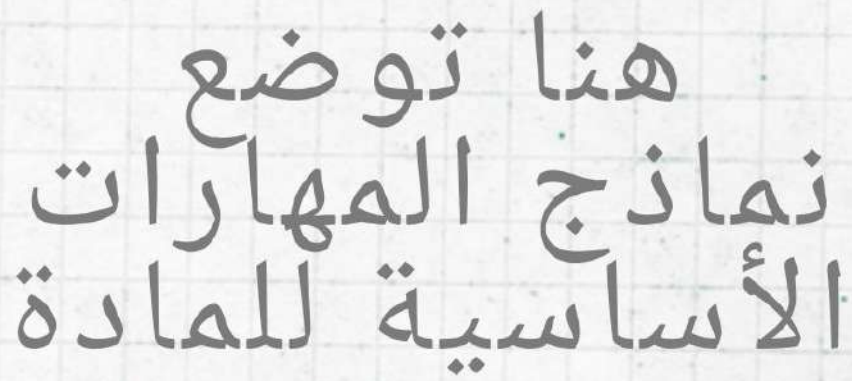 هنا توضع
نماذج المهارات
الأساسية للمادة